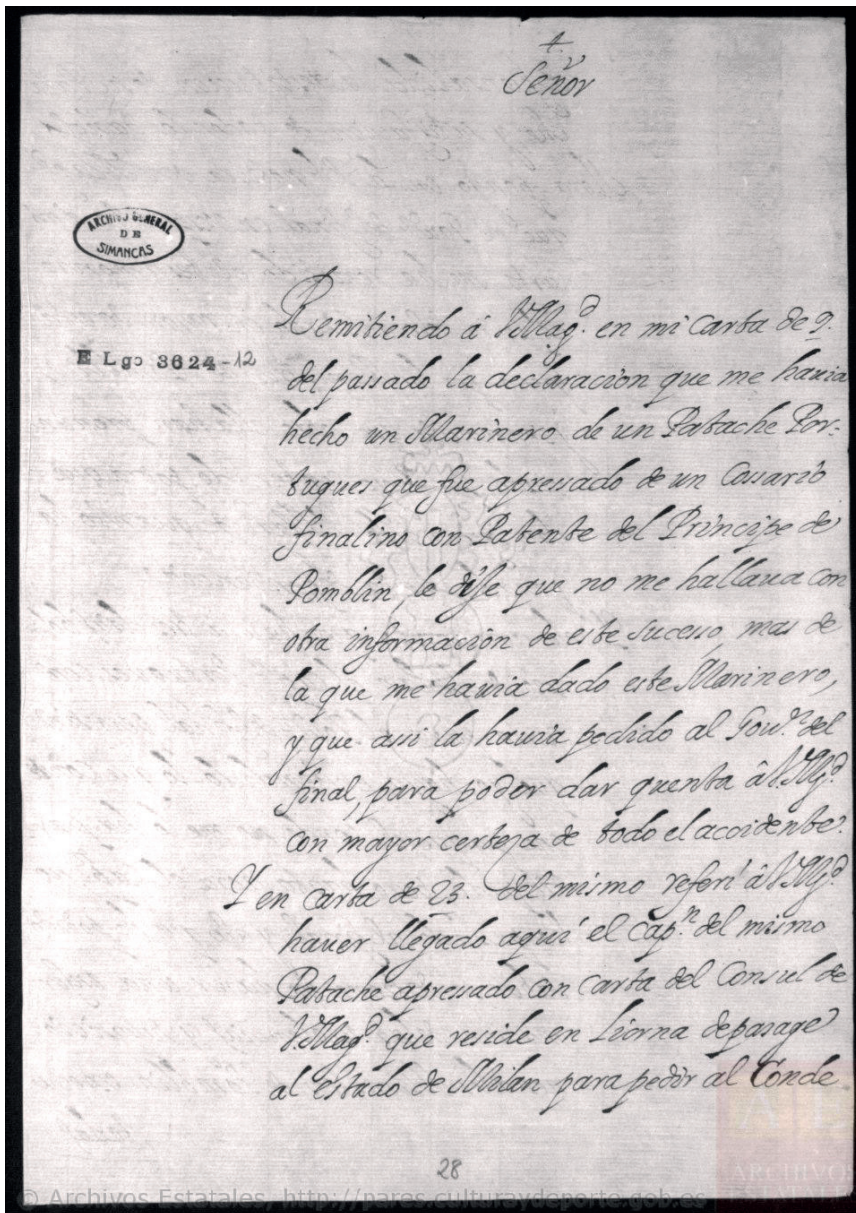 +
Señor
ARCHIVO GENERAL
DE
SIMANCAS
E Lgo 3624-12
Remitiendo á V.Magd. en mi carta de 9.
del passado la declaracion que me hauia
hecho un Marinero de un Patache Por-
tugues que fue apressado de un Cossario
finalino con Patente del Principe de
Pomblin, le dije que no me hallaua con
otra informacion de este sucesso, mas de
la que me hauia dado este Marinero,
y que assi la hauia pedido al Gouor. del
final, para poder dar quenta â V.Mgd.
con mayor certeza de todo el accidente.
Y en carta de 23. del mismo referi â V.Mgd.
hauer llegado aqui el capn. del mismo
Patache apressado con carta del Consul de
V.Magd. que reside en Liorna de pasage
al estado de Milan para pedir al Conde
28
© Archivos Estatales, http://pares.culturaydeporte.gob.es
AE
ARCHIVOS
ESTATALES